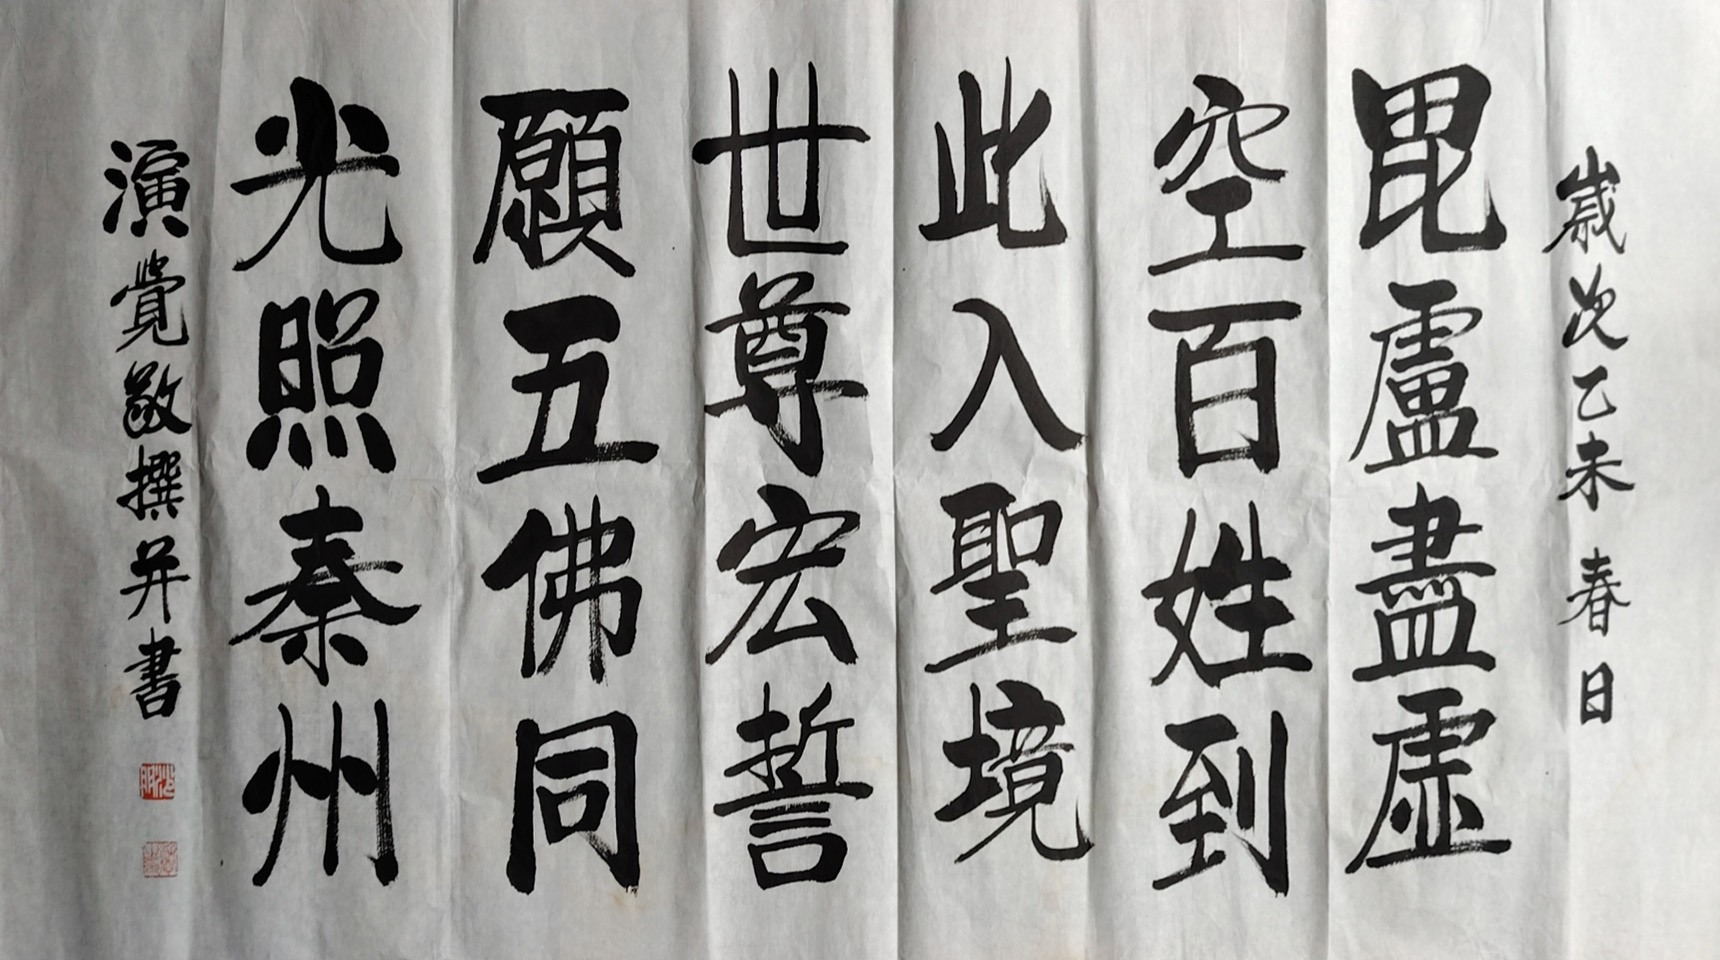 歲次乙未春日
毘盧盡虛
空百姓到
此入聖境
世尊宏誓
願五佛同
光照秦州
演覺敬撰并書